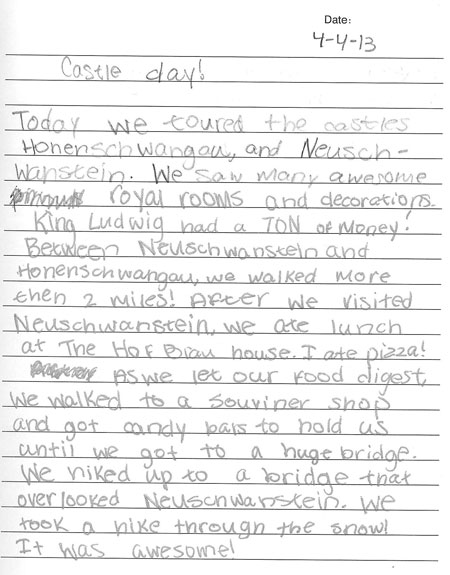 Date:
4-4-13
Castle day!
Today we toured the castles
Honenschwangau, and Neusch-
wanstein. We saw many awesome
royal rooms and decorations.
King Ludwig had a TON of money!
Between Neuschwanstein and
Honenschwangau, we walked more
then 2 miles! After we visited
Neuschwanstein, we ate lunch
at The Hof Brau house. I ate pizza!
As we let our food digest,
we walked to a souviner shop
and got candy bars to hold us
until we got to a huge bridge.
We hiked up to a bridge that
overlooked Neuschwanstein. We
took a hike through the snow!
It was awesome!